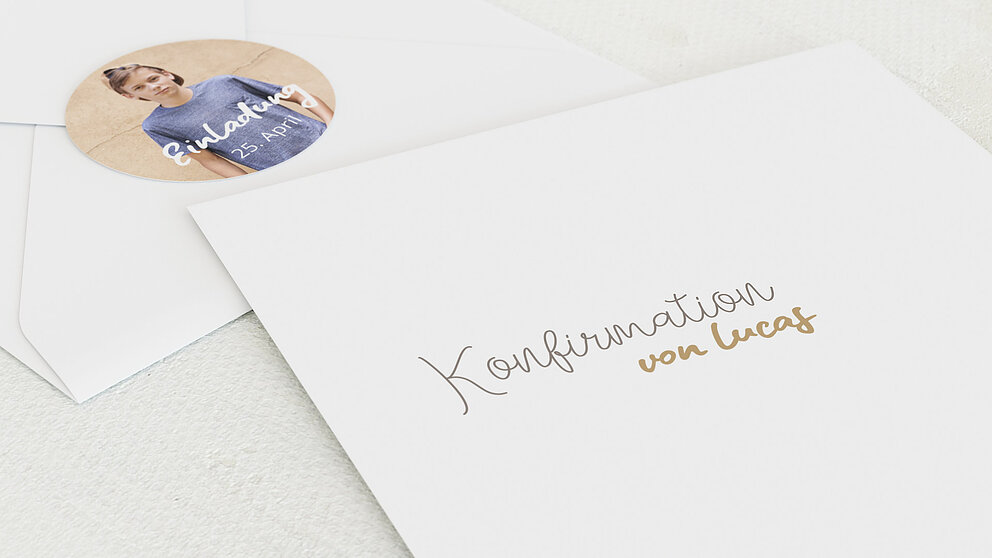 Einladung
25. April
Konfirmation
von Lucas